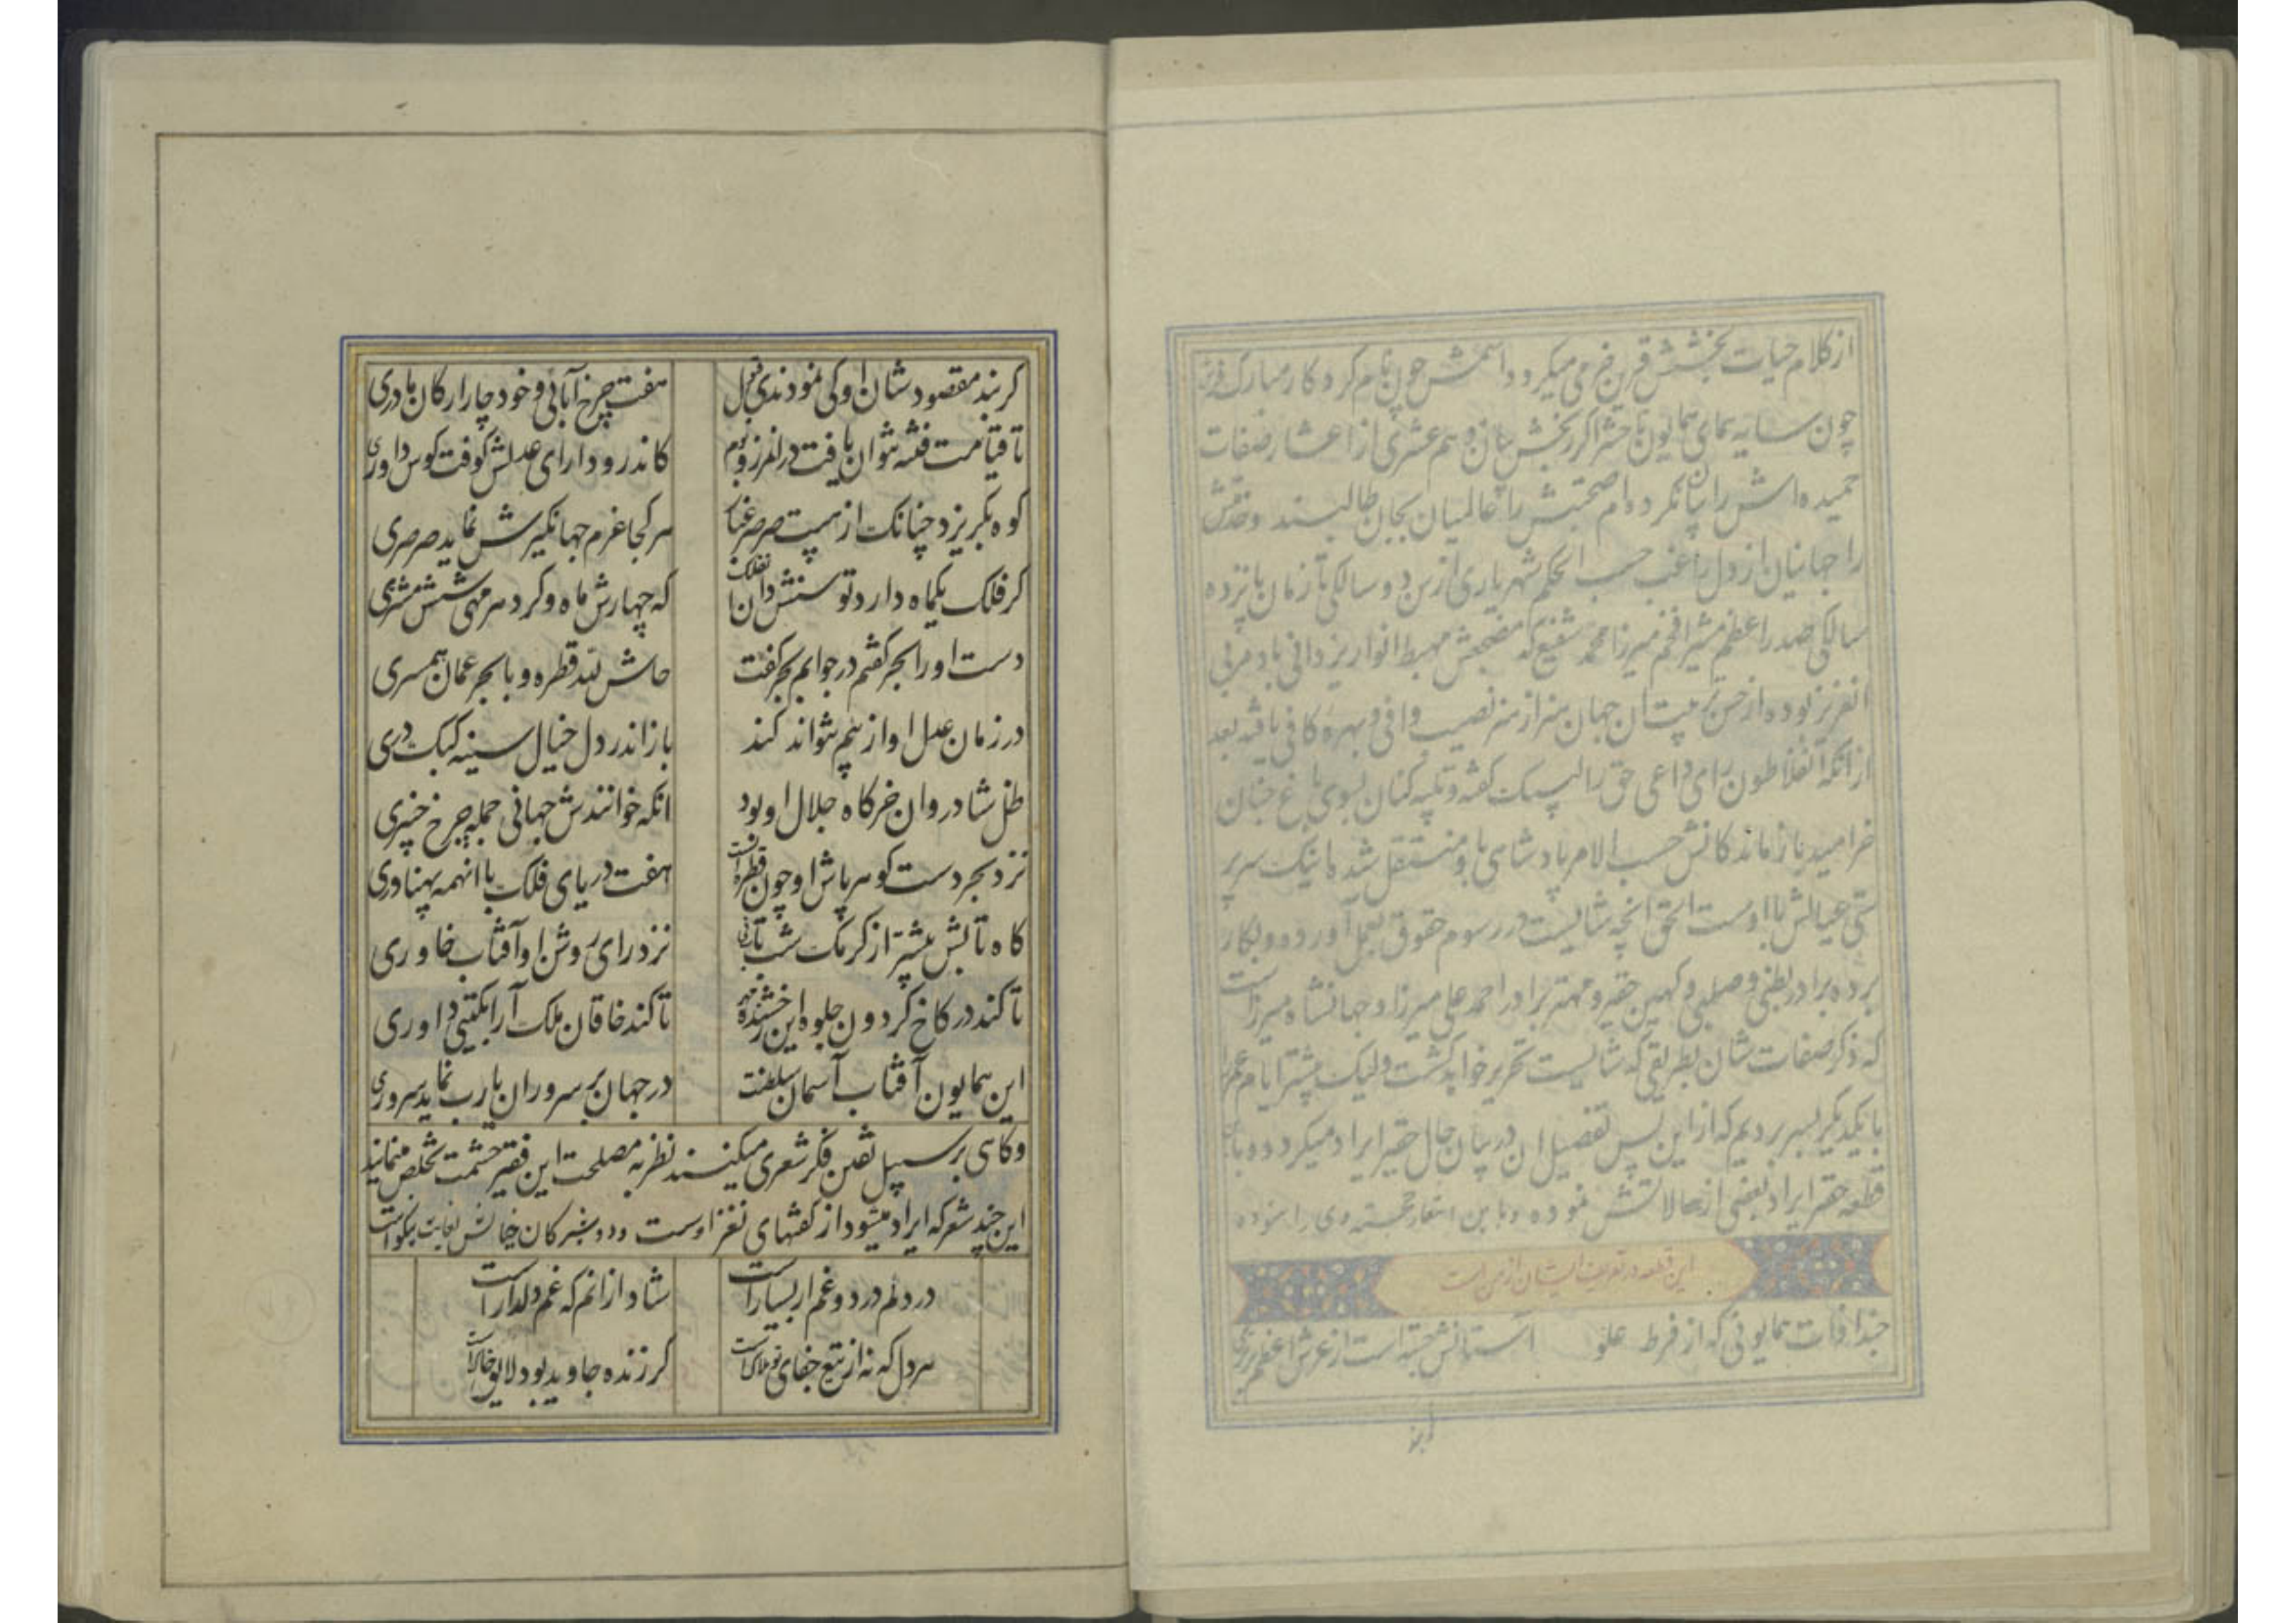 از کلام حیات بخشش قرین خرمی میکرد و اسمش چون نام کردکار مبارک
چون سایه همای همایون تا حشر اکر بخشش بیان دهم عشری از اعشار صفات
حمیده اش را بیان نکرده ام صحبتش را عالمیان بجان طالبند و خدمتش
را جهانیان از دل راغب حسب الحکم شهریاری از سن دو سالکی تا زمان پانزده
سالکی صدر اعظم مشیر افخم میرزا محمد شفیع که مضجعش مهبط انوار یزدانی باد مربی
انعزیز بوده از حسن تربیت ان جهان هنر از هنر نصیب وافی و بهره کافی یافته بعد
از آنکه آنفلاطون رای داعی حق را لبیک گفته و تکیه کنان بسوی باغ جنان
خرامید بازماندکانش حسب الامر پادشاهی باو منتقل شد
عیالش با اوست الحق انچه شایست در رسوم حقوق بعمل آورده و بکار
برده برادر بطنی و صلبی و کهین حقیر و مهتر برادر احمد علی میرزا و جهانشاه میرزا است
که ذکر صفات شان بطریقی که شایست تحریر خواهد کشت ولیک بیشتر ایام عمر
با یکدیگر بسر بردیم که از این پس تفصیل ان در بیان حال حقیر ایراد میکردد
قطعه حقیر ایراد بعضی از حالاتش نموده و باین اشعار خجسته وی را ستوده
این قطعه در تعریف ایشان از من است
حبذا ذات همایونی که از فرط علو آستانش جسته است از عرش اعظم برتری
کر بند مقصود شان او کی نمودندی قبول هفت چرخ آبائی و خود چار ارکان مادری
تا قیامت فتنه نتوان یافت در انمرز و بوم کاندرو دارای عدلش کوفت کوس داوری
کوه بکریزد چنانک از هیبت صرصر غبار هر کجا عزم جهانکیرش نماید صرصری
کر فلک یکماه دارد توسنش دان نه فلک که چهارش ماه و کرد هر مهی شش مشتری
دست او را بحر کفتم در جوابم بحر کفت حاش لله قطره و با بحر عمان همسری
در زمان عدل او از بیم نتواند کند باز اندر دل خیال سینه کبک دری
ظل شادروان خرکاه جلال او بود انکه خوانندش جهانی جمله چرخ چنبری
نزد بحر دست کوهر پاش او چون قطره است هفت دریای فلک با انهمه پهناوری
کاه تابش بیشتر از کرمک شب تاب نی نزد رای روشن او آفتاب خاوری
تا کند در کاخ کردون جلوه این رخشنده مهر تا کند خاقان ملک آرا بکیتی داوری
این همایون آفتاب آسمان سلطنت در جهان بر سروران یارب نماید سروری
و کاهی بر سبیل تفنن فکر شعری میکنند نظر به مصلحت این فقیر حشمت تخلص مینمایند
این چند شعر که ایراد میشود از کفتهای نغز اوست
در دلم درد و غم ار بسیار است شاد از انم که غم دلدار است
هر دل که نه از تیغ جفای تو هلاک است کر زنده جاوید بود لایق خاک است